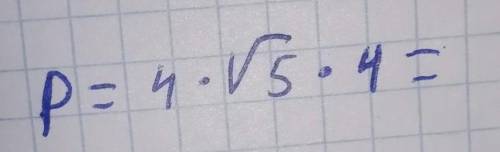 p = 4 · √5 · 4 =